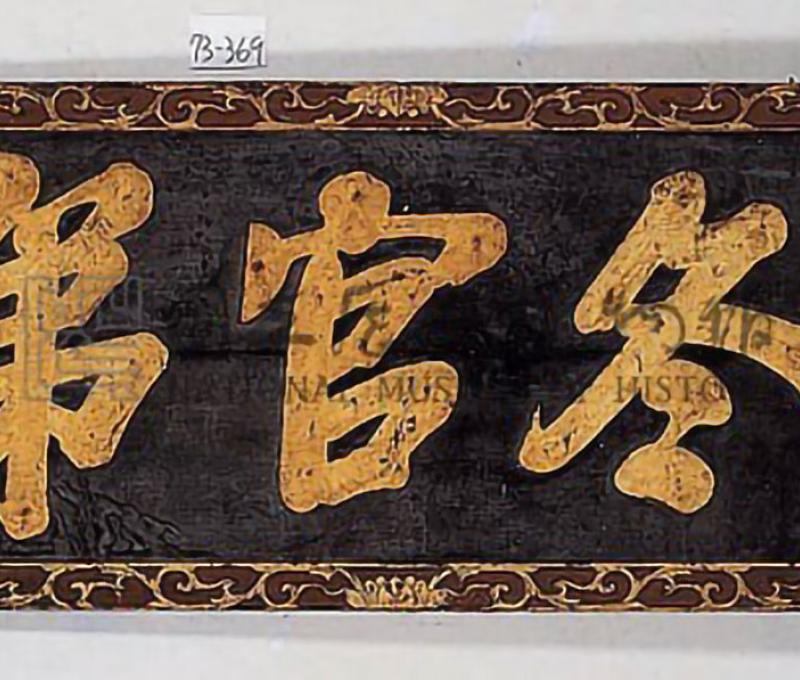 73-369
冬官第
NATIONAL MUS HISTO